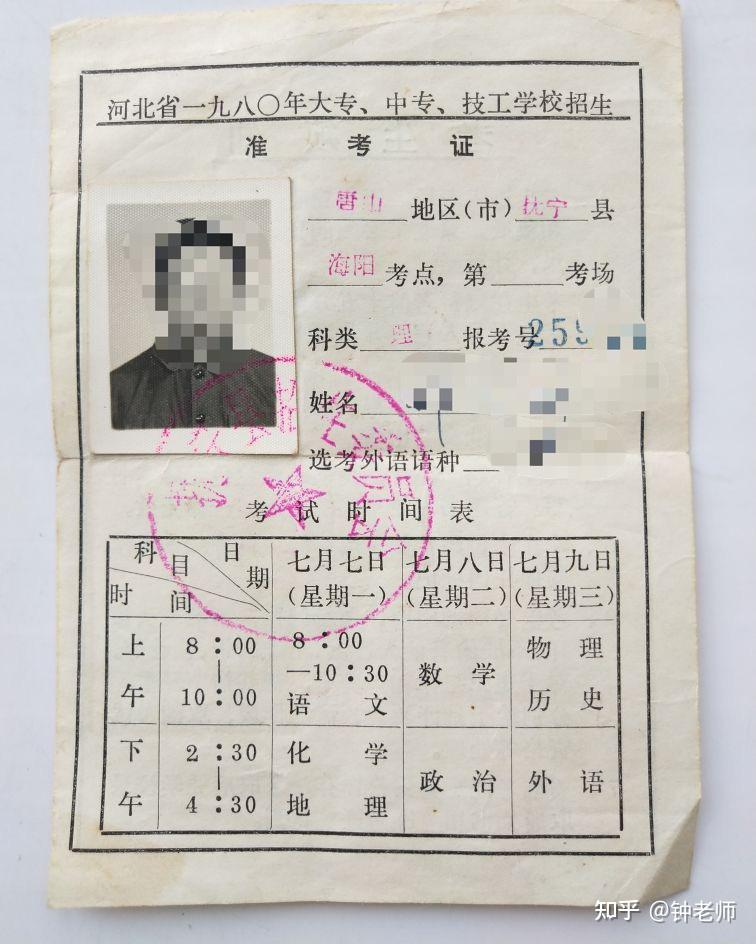 河北省一九八〇年大专、中专、技工学校招生
准考证
唐山 地区(市) 抚宁 县
海阳 考点，第 考场
科类 理 报考号 259
姓名
选考外语语种
考试时间表
科目 日期 时间 七月七日（星期一） 七月八日（星期二） 七月九日（星期三）
上午 8：00—10：00 8：00—10：30 语文 数学 物理 历史
下午 2：30—4：30 化学 地理 政治 外语
知乎 @钟老师